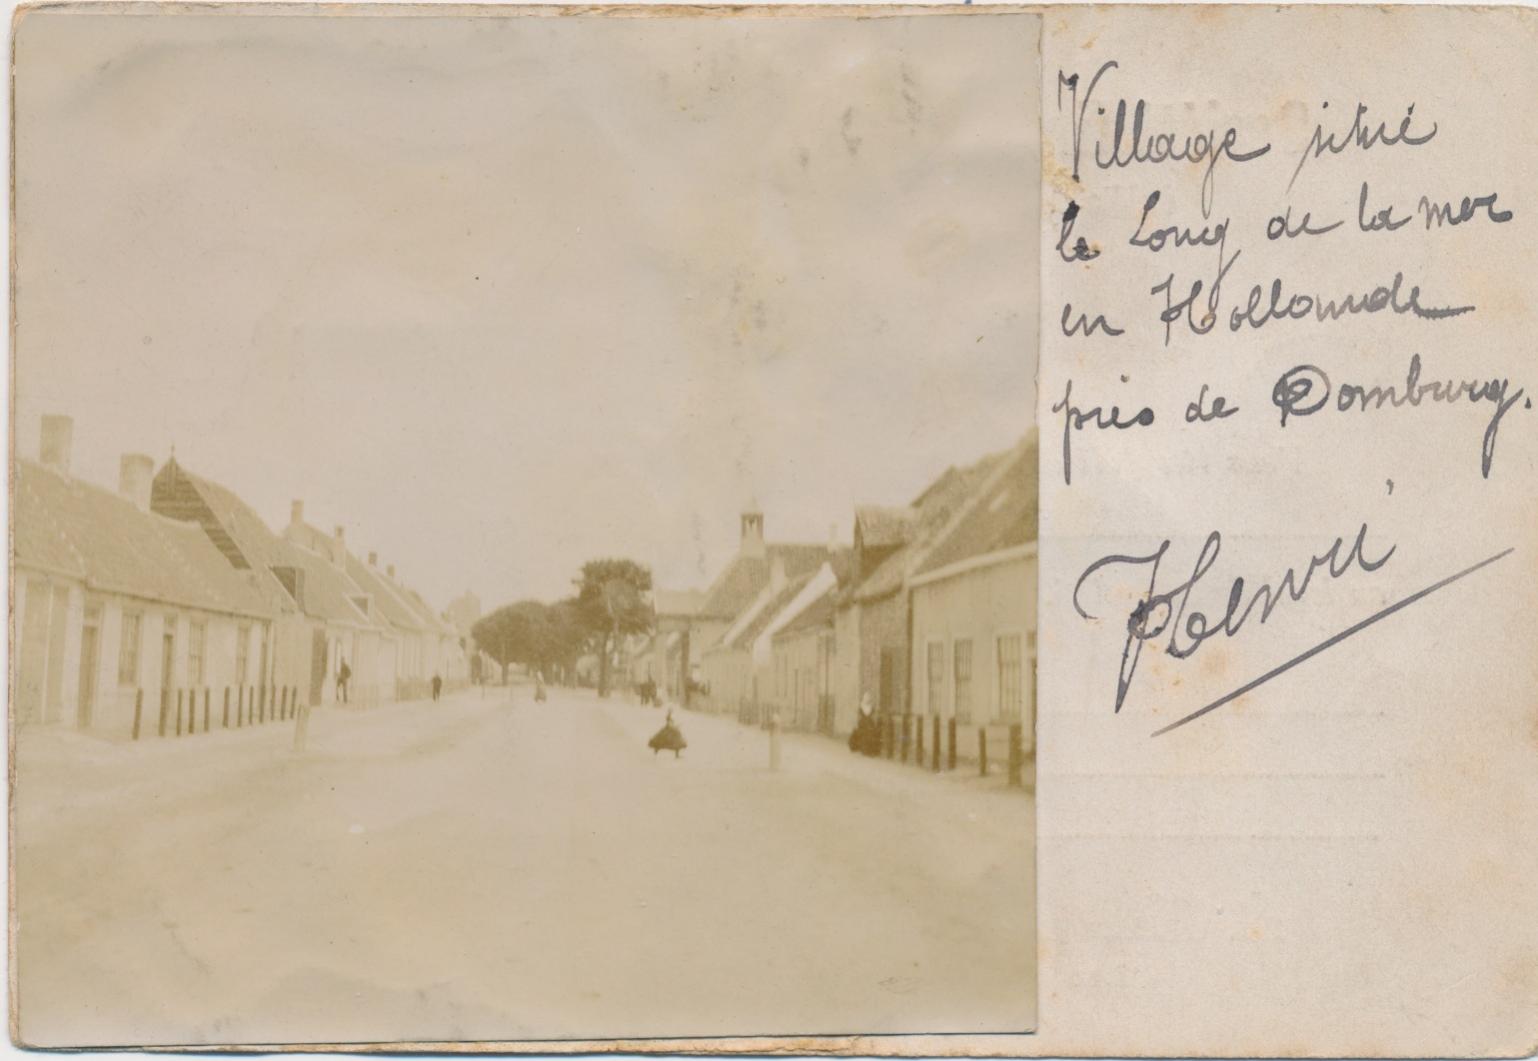 Village situé
le Long de la mer
en Hollande
près de Domburg.
Henri